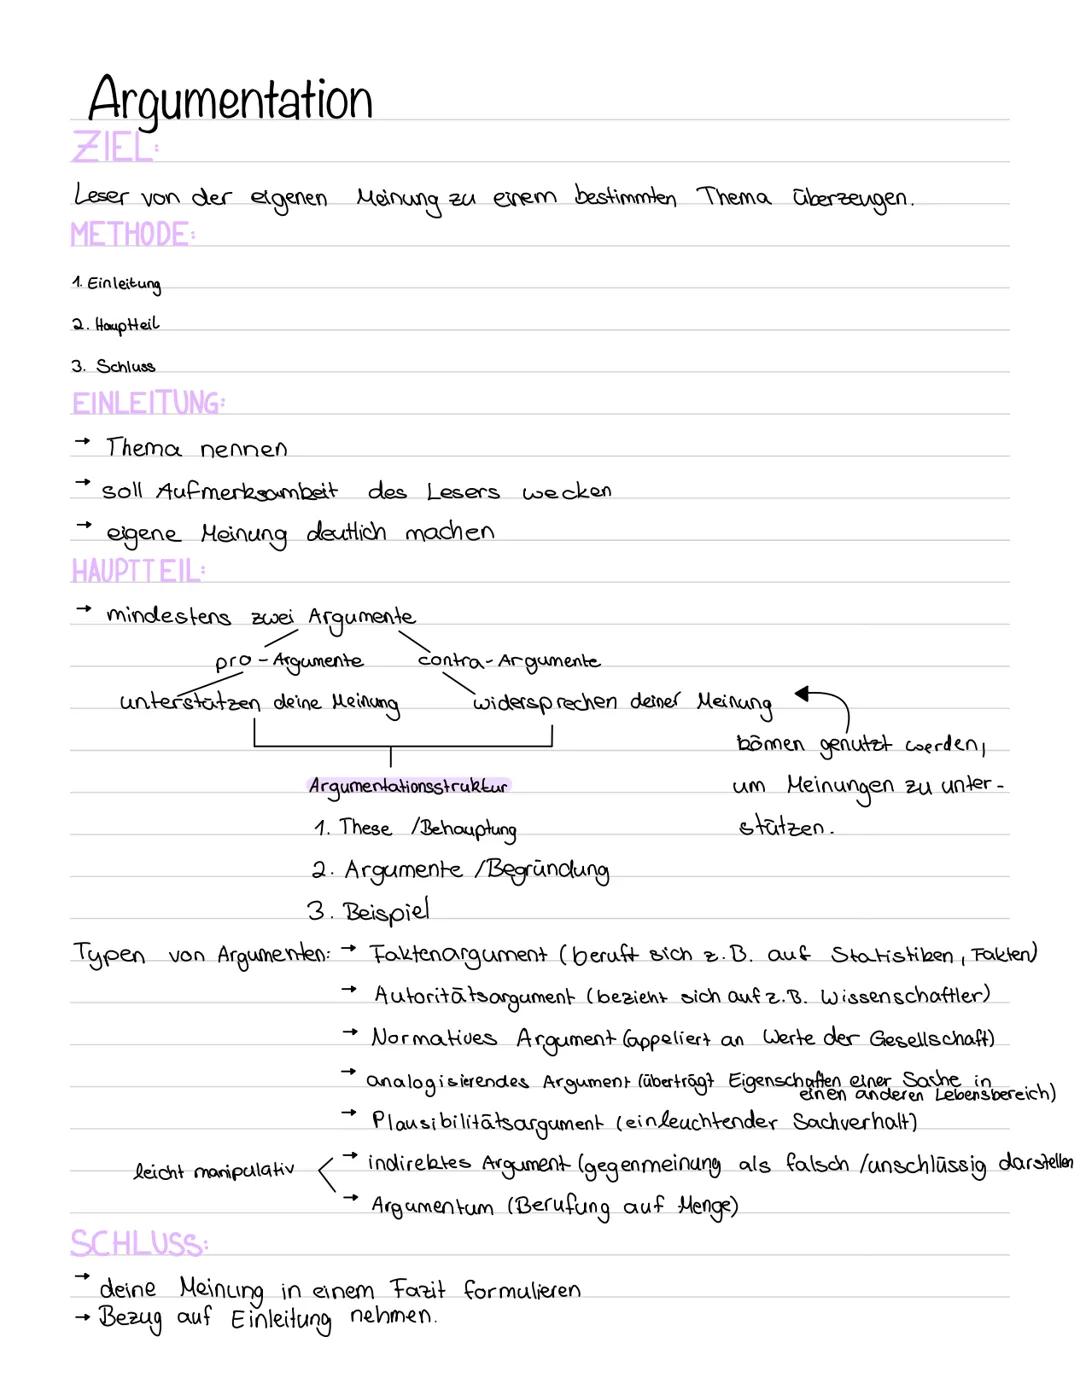 Argumentation
ZIEL:
Leser von der eigenen Meinung zu einem bestimmten Thema überzeugen.
METHODE:
1. Einleitung
2. Hauptteil
3. Schluss
EINLEITUNG:
→ Thema nennen
→ soll Aufmerksamkeit des Lesers wecken
→ eigene Meinung deutlich machen
HAUPTTEIL:
→ mindestens zwei Argumente
pro-Argumente contra-Argumente
unterstützen deine Meinung widersprechen deiner Meinung
können genutzt werden,
Argumentationsstruktur um Meinungen zu unter-
1. These /Behauptung stützen.
2. Argumente /Begründung
3. Beispiel
Typen von Argumenten: → Faktenargument (beruft sich z.B. auf Statistiken, Fakten)
→ Autoritätsargument (bezieht sich auf z.B. Wissenschaftler)
→ Normatives Argument (appeliert an Werte der Gesellschaft)
→ analogisierendes Argument (überträgt Eigenschaften einer Sache in
einen anderen Lebensbereich)
→ Plausibilitätsargument (einleuchtender Sachverhalt)
leicht manipulativ → indirektes Argument (gegenmeinung als falsch /unschlüssig darstellen
→ Argumentum (Berufung auf Menge)
SCHLUSS:
→ deine Meinung in einem Fazit formulieren
→ Bezug auf Einleitung nehmen.